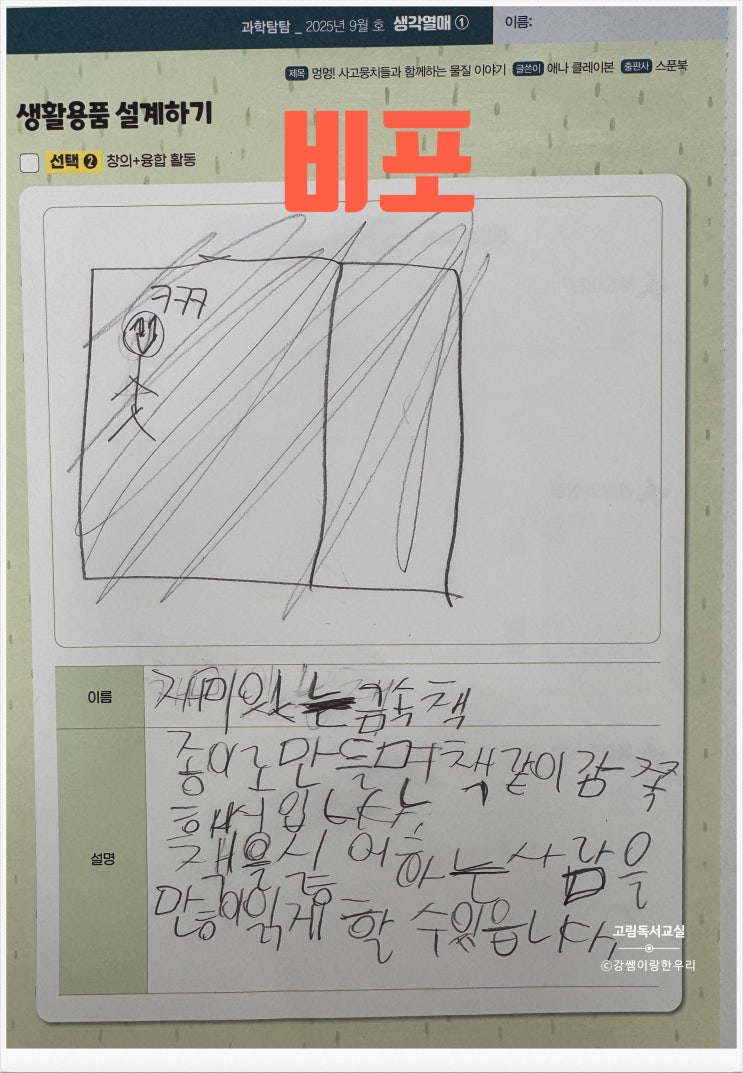 과학탐탐 _ 2025년 9월 호 생각열매 ①
이름:
제목 멍멍! 사고뭉치들과 함께하는 물질 이야기 글쓴이 애나 클레이본 출판사 스푼북
생활용품 설계하기
비포
선택 ❷ 창의+융합 활동
ㅋㅋㅋ
이름
재미있는 컴속 책
종이로 만들며 책 같이
해서 입니다
설명
책을 싫어 하는 사람을
만히 읽게 할 수 있습니다.
고림독서교실
©강쌤이랑한우리